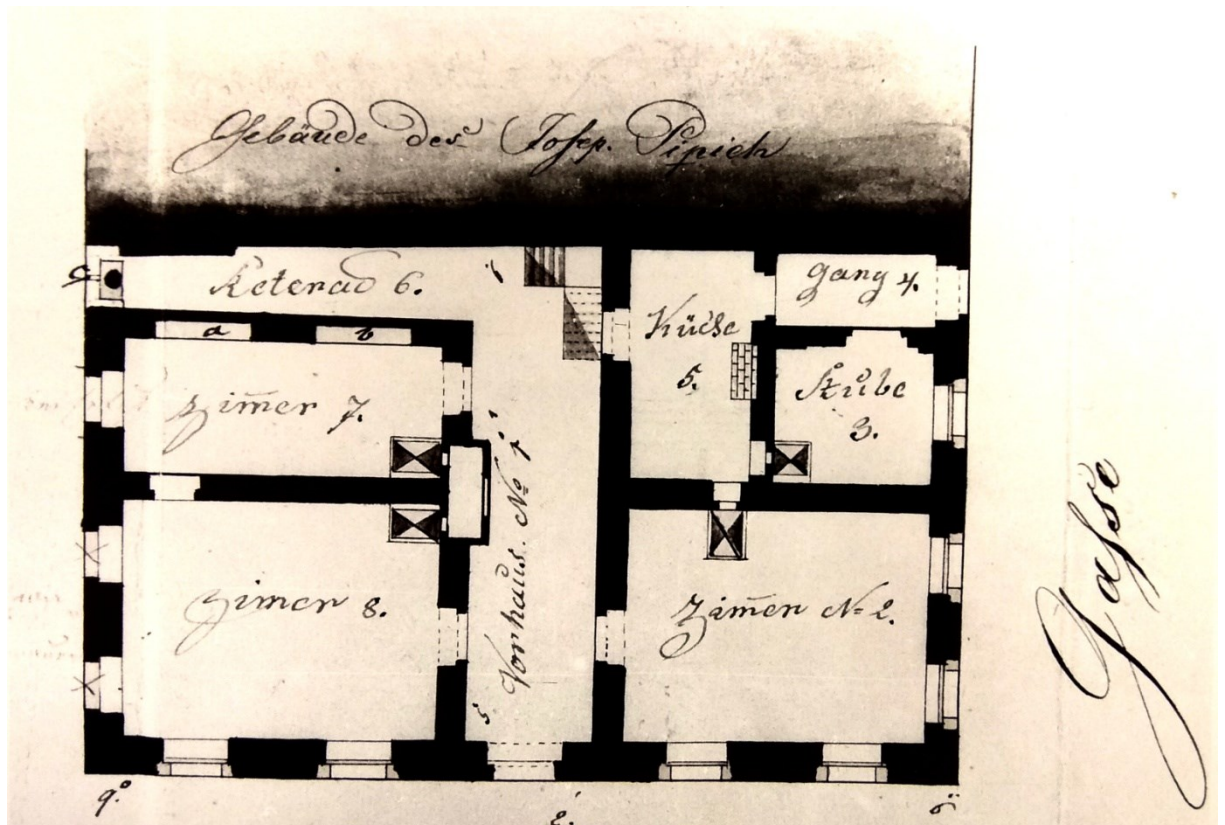 Gebäude des Josep. Pipich
Reterad 6.
gang 4.
Küche
5.
a
b
Stube
3.
Zim̄er 7.
Vorhaus. No 1
Zim̄er 8.
Zim̄er No 2.
Gasse